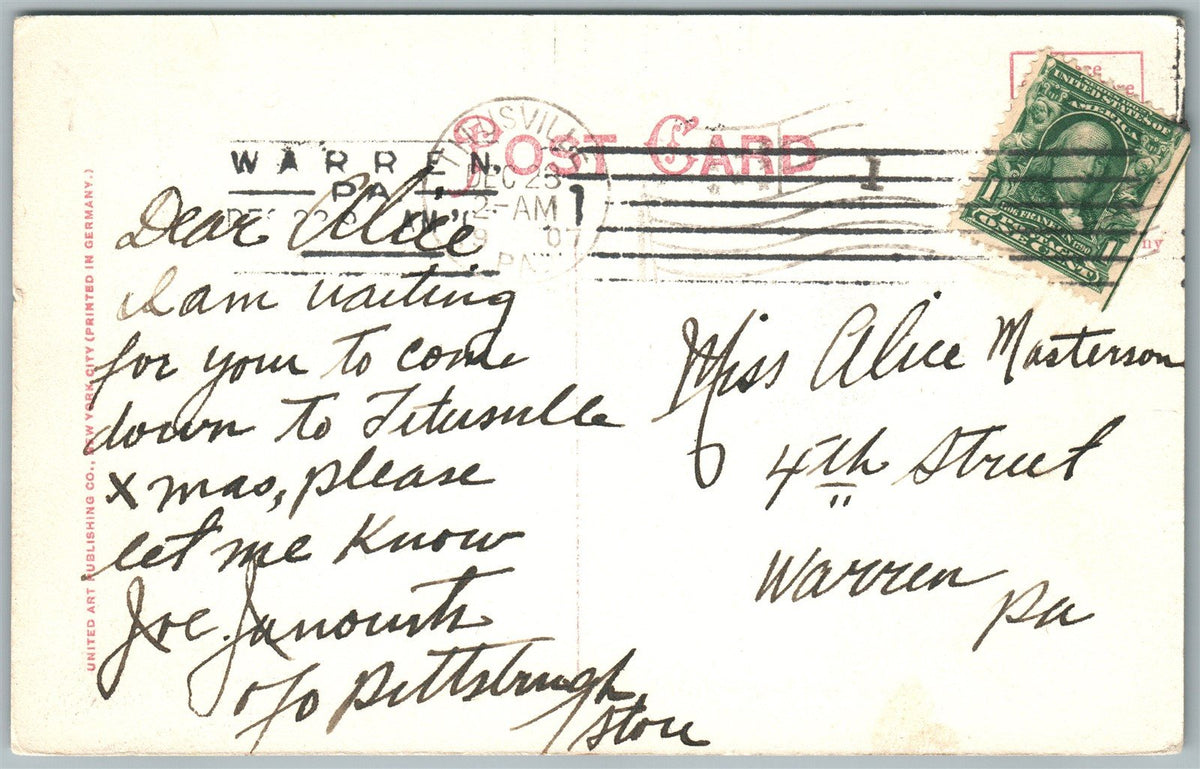 POST CARD
TITUSVILLE
DEC 23
2-AM
07
PA.
WARREN,
PA.
1
1
UNITED STATES OF
AMERICA
1 1
ONE CENT
ny
UNITED ART PUBLISHING CO., NEW YORK CITY (PRINTED IN GERMANY.)
Dear Alice
I am waiting
for your to come
down to Titusville
xmas, please
let me Know
Joe.
c/o Pittsburgh
Store
Miss Alice Masterson
4th Street
Warren
Pa